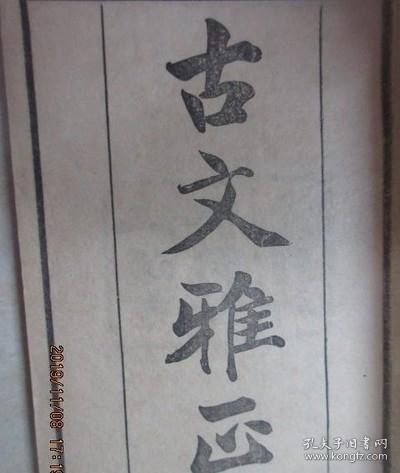 古文雅正
2019/11/08 17:1
孔夫子旧书网
www.kongfz.com